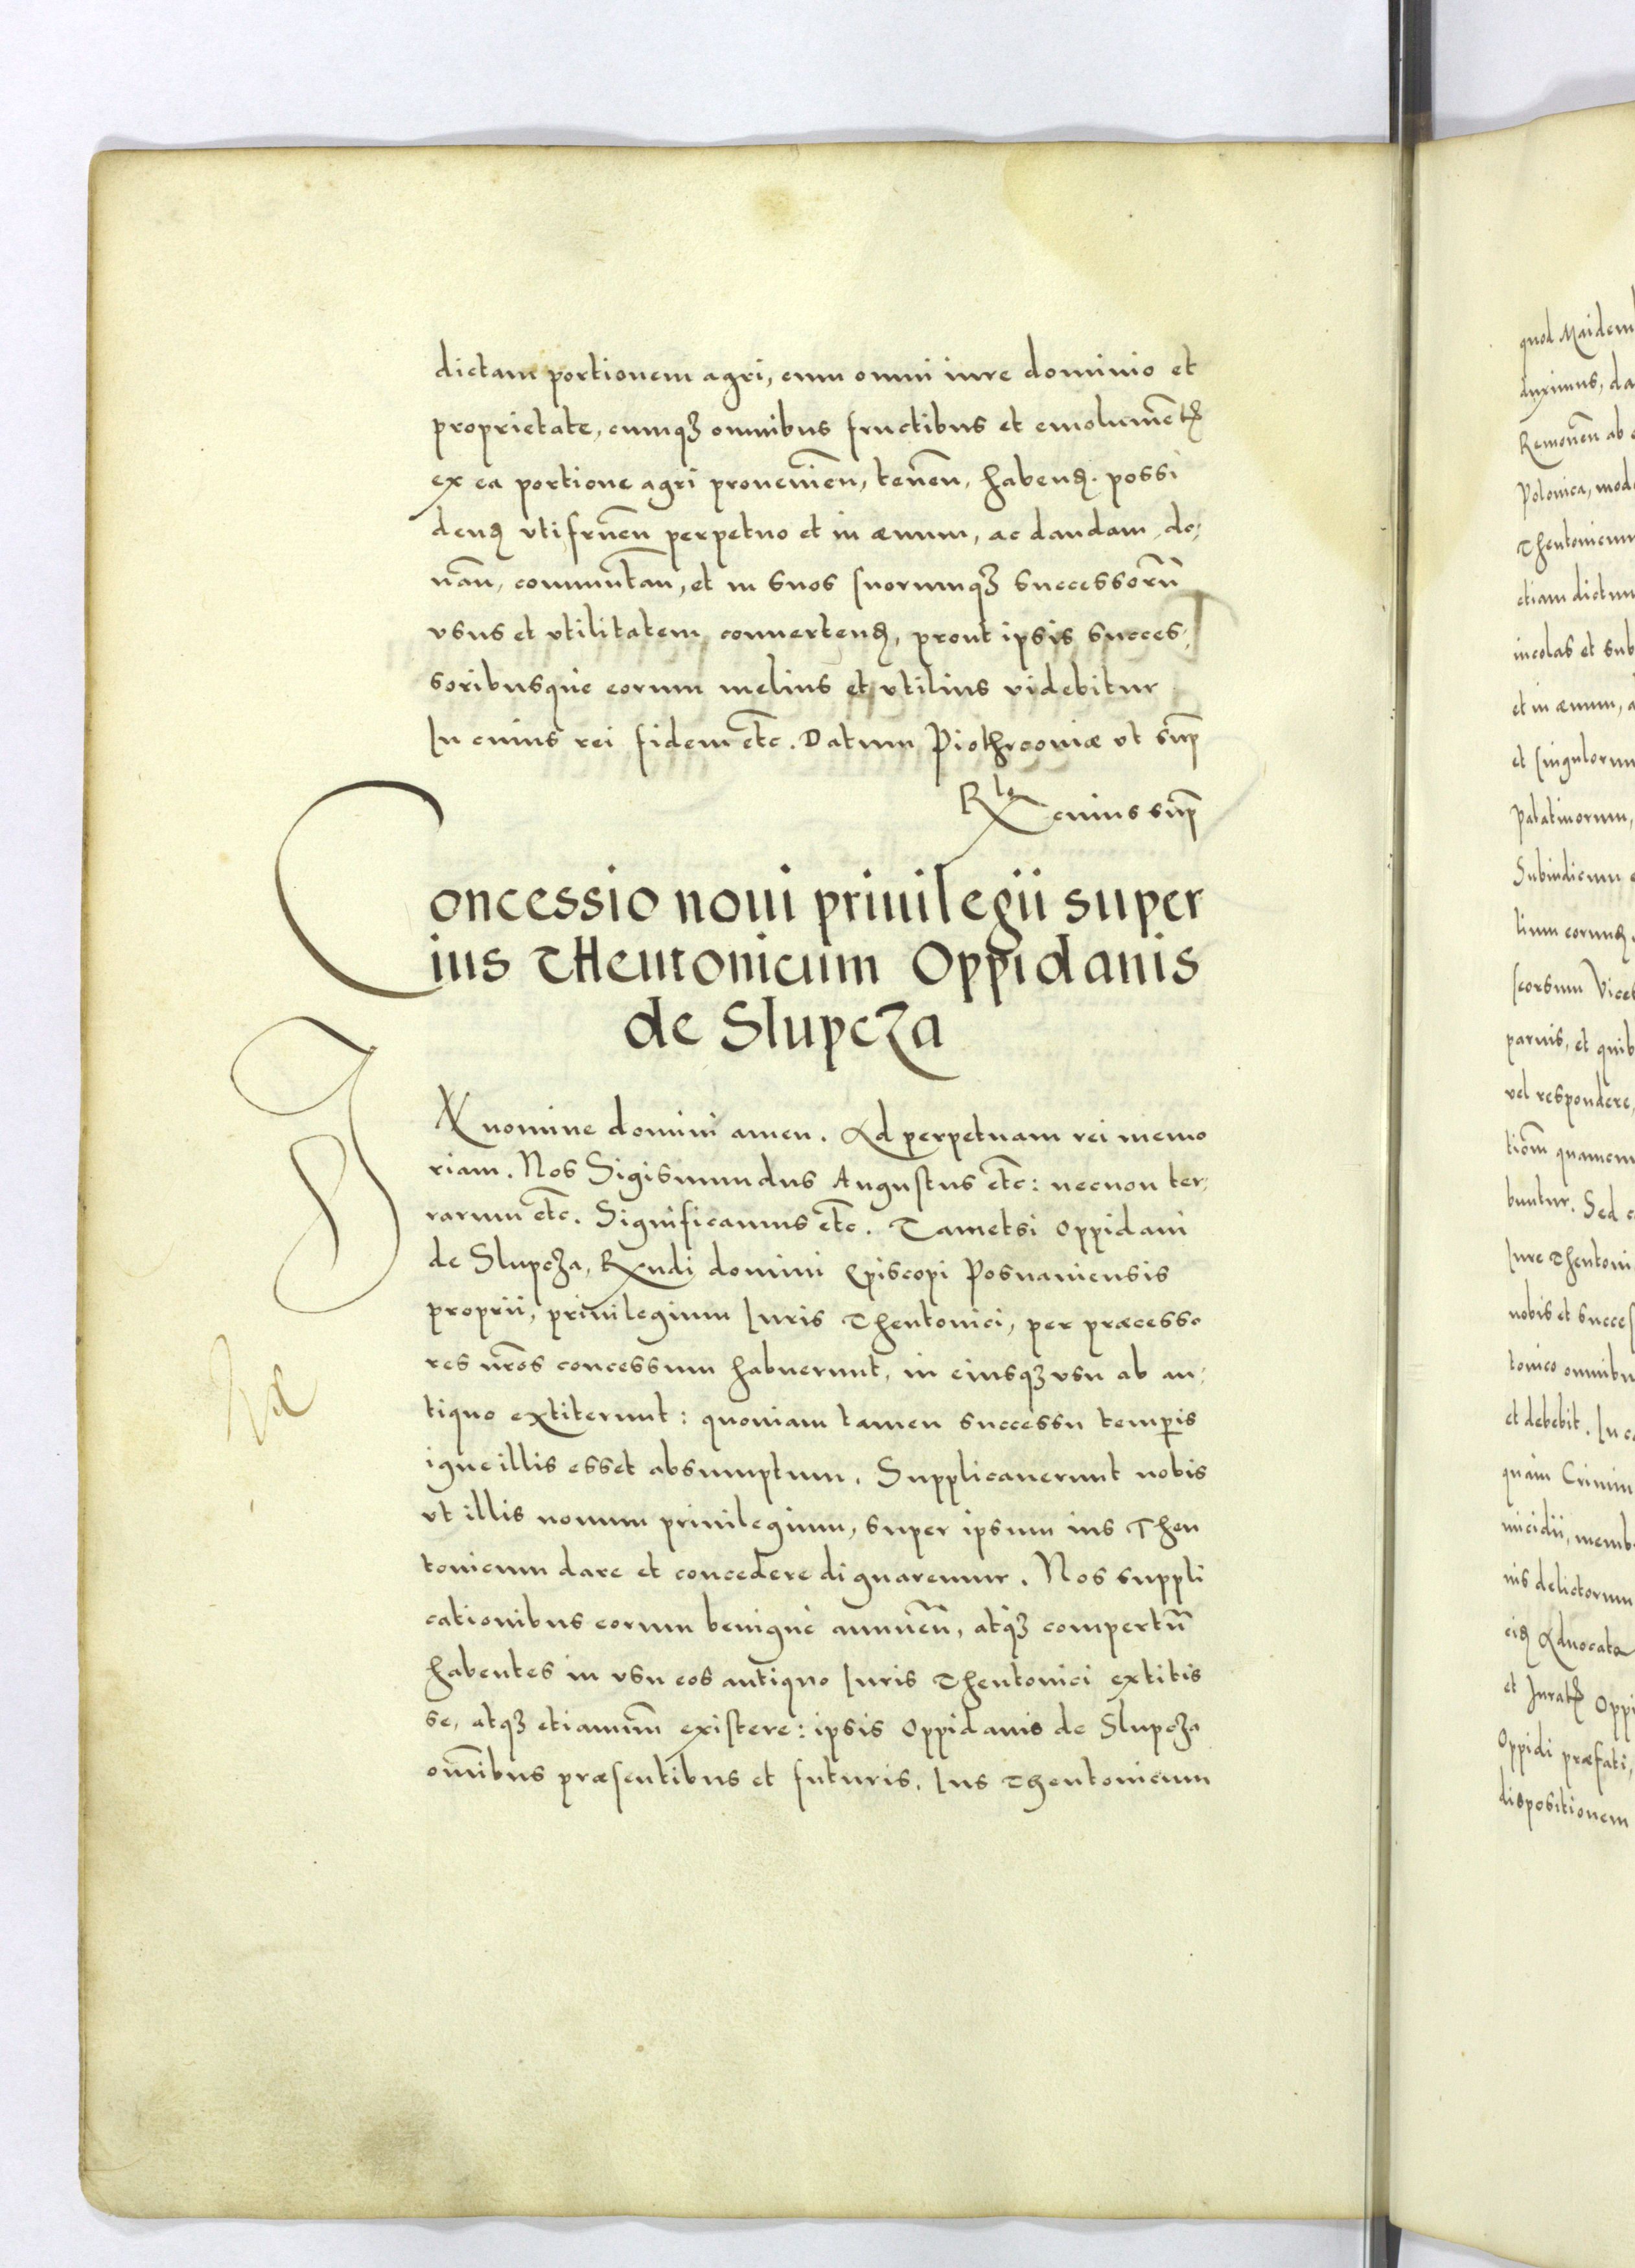 dictam portionem agri, cum omni iure dominio et
proprietate, cumqꝫ omnibus fructibus et emolumētꝭ
ex ea portione agri prouenieñ, teneñ, habenꝺ. possi
denꝺ vti frueñ perpetuo et in æuum, ac dandam, do⸗
nañ, commutañ, et in suos suorumqꝫ successorũ
vsus et vtilitatem conuertenꝺ, prout ipsis succes⸗
soribusque eorum melius et vtilius videbitur
In cuius rei fidem etc̃. Datum Piothrcouiæ vt sup̃
Rlo cuius sup̃
Concessio noui priuilegii super
ius Theutonicum Oppidanis
de Slupcza
IN nomine domini amen. Ad perpetuam rei memo
riam. Nos Sigismundus Augustus etc̃: necnon ter⸗
rarum etc̃. Significamus etc̃. Tametsi oppidani
de Slupcza, Rxndi domini Episcopi Posnaniensis
proprii, priuilegium Iuris Theutonici, per præcesso
res nr̃os concessum habuerunt, in eiusqꝫ vsu ab an⸗
tiquo extiterunt: quoniam tamen successu temp̱is
igne illis esset absumptum. Supplicauerunt nobis
vt illis nouum priuilegium, super ipsum ius Theu
tonicum dare et concedere dignaremur. Nos suppli
cationibus eorum benigne annueñ, atqꝫ compertũ
habentes in vsu eos antiquo Iuris Theutonici extitis
se, atqꝫ etiamnũ existere: ipsis oppidanis de Slupcza
om̃ibus præsentibus et futuris, Ius Theutonicum
quod Maidem
duximus, da
Remoueñ ab
Polonica, mod
Theutonicum
etiam dictum
incolas et sub
et in æuum, a
et singulorum
Palatinorum,
Subiudicum
lium eorumꝺ
seorsum Vice
paruis, et quib
vel respondere,
tiom̃ quamcun
buntur. Sed c
Iure Theutoni
nobis et succes
tonico omnibu
et debebit. In c
quam Crimin
micidii, memb
nis delictorum
ciꝺ Aduocato
et Juratꝭ Oppi
Oppidi præfati,
dispositionem